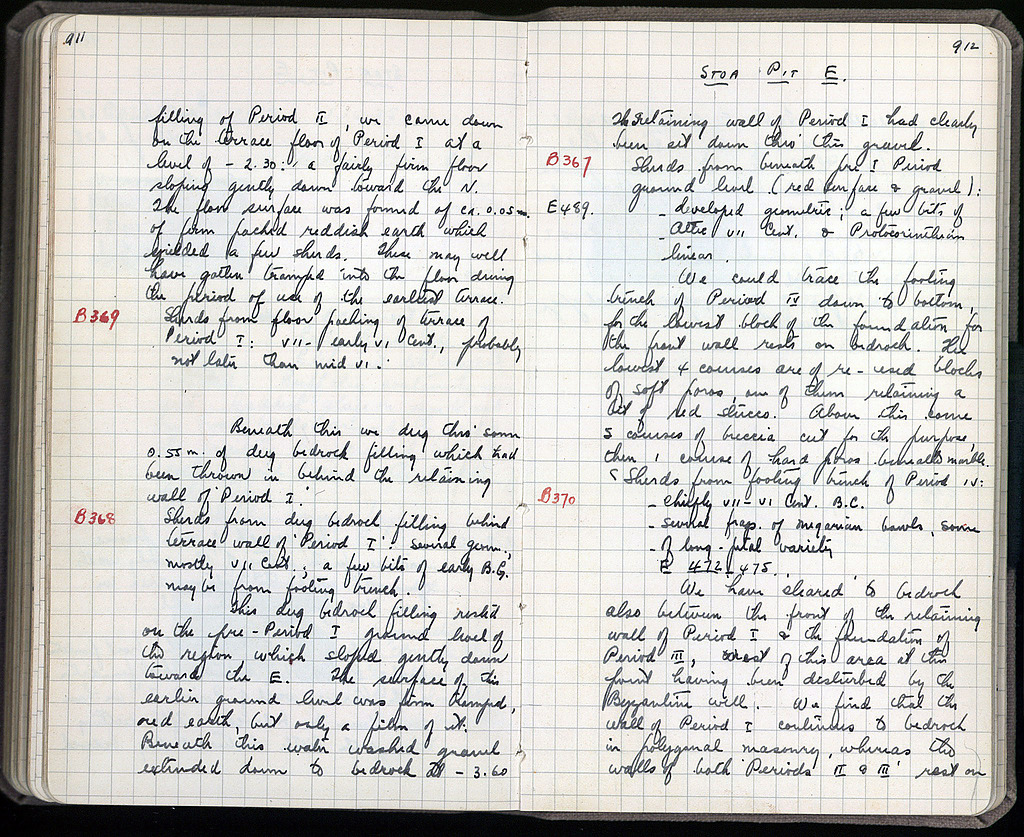 911
filling of Period II, we came down
on the terrace floor of Period I at a
level of - 2.30: a fairly firm floor
sloping gently down toward the N.
The floor surface was formed of ca. 0.05 m.
of firm packed reddish earth which
yielded a few sherds. These may well
have gotten tramped into the floor during
the period of use of the earliest terrace.
B369 Sherds from floor packing of terrace of
Period I: VII - early VI Cent., probably
not later than mid VI.
Beneath this we dug thro' some
0.55 m. of dug bedrock filling which had
been thrown in behind the retaining
wall of Period I
B368 Sherds from dug bedrock filling behind
terrace wall of Period I: several geom.,
mostly VII Cent.; a few bits of early B.G.
may be from footing trench.
This dug bedrock filling rested
on the pre-Period I ground level of
the region which sloped gently down
towards the E. The surface of this
earlier ground level was firm tramped,
red earth, but only a film of it.
Beneath this water washed gravel
extended down to bedrock at - 3.60
912
STOA PIT E.
The retaining wall of Period I had clearly
been set down thro' this gravel.
B367 Sherds from beneath pre I Period
ground level (red surface & gravel):
E489. - developed geometric; a few bits of
Attic VII Cent. & Protocorinthian
linear.
We could trace the footing
trench of Period IV down to bottom,
for the lowest block of the foundation for
the front wall rests on bedrock. The
lowest 4 courses are of re-used blocks
of soft poros, one of them retaining a
bit of red stucco. Above this come
5 courses of breccia cut for the purpose,
then 1 course of hard poros beneath marble.
Sherds from footing trench of Period IV:
B370 - chiefly VII - VI Cent. B.C.
- several frags. of megarian bowls, some
- of long-petal variety
E 472-475.
We have cleared to bedrock
also between the front of the retaining
wall of Period I & the foundation of
Period III, most of this area at this
point having been disturbed by the
Byzantine well. We find that the
wall of Period I continues to bedrock
in polygonal masonry, whereas the
walls of both Periods II & III rest on